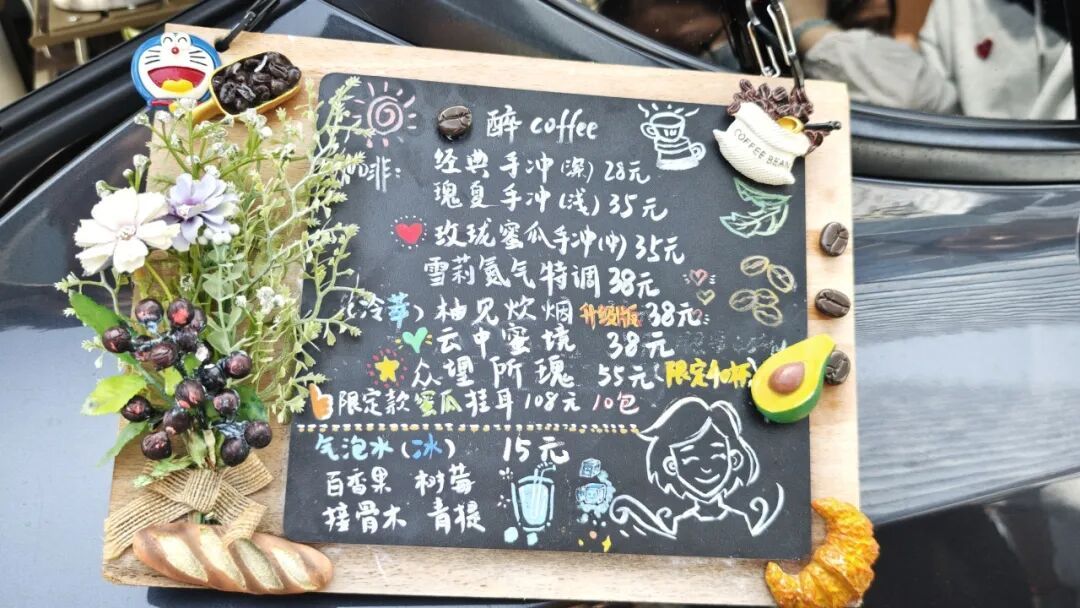 醉 coffee
COFFEE BEAN
咖啡: 经典手冲(深) 28元
瑰夏手冲(浅) 35元
玫珑蜜瓜手冲(中) 35元
雪莉氮气特调 38元
(冷萃) 柚见炊烟 升级版 38元
云中蜜境 38元
众望所瑰 55元(限定40杯)
限定款蜜瓜挂耳 108元 10包
气泡水(冰) 15元
百香果 树莓
接骨木 青提